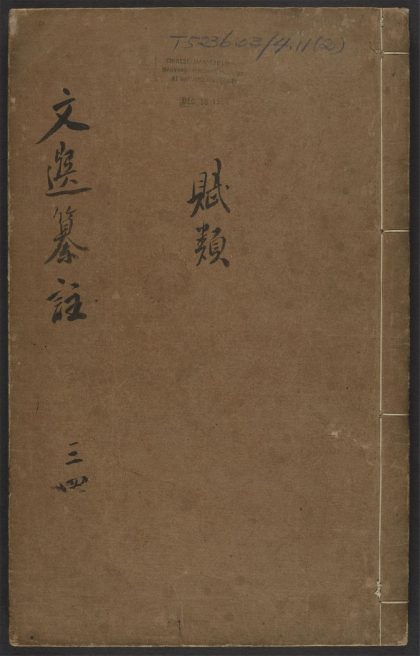 T5236.03/4.11(2)
文選纂註
三四
賦類